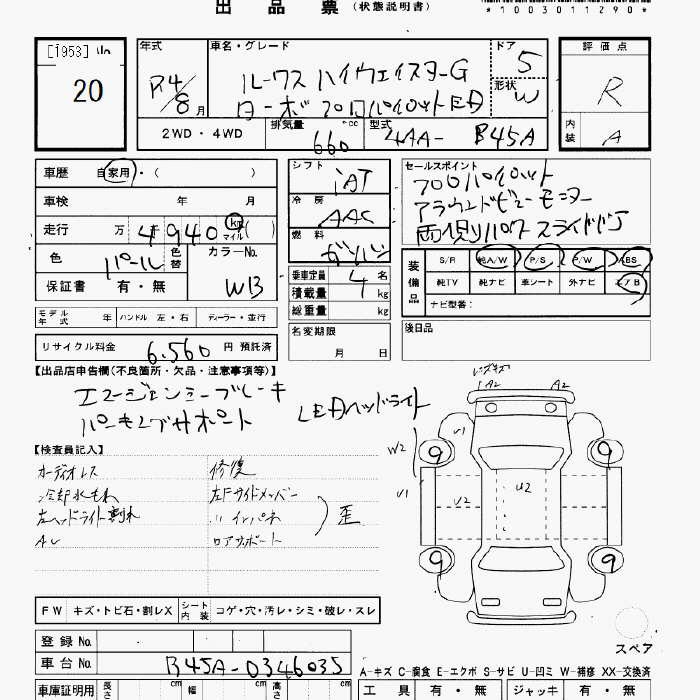 出品票 (状態説明書)
*1003011290*
[1953]
20
年式
R4/8月
車名・グレード
ルークス ハイウェイスターG
ターボプロパイロットED
ドア 5
形状 W
評価点
R
内装 A
2WD・4WD
排気量 660 cc
型式 4AA- B45A
車歴 自家用・( )
車検 年 月
走行 万 4千940 km マイル ( )
色 パール 色替
カラーNo. WB
保証書 有・無
シフト iAT
冷房 AAC
燃料 ガソリン
乗車定員 4 名
積載量 kg
総重量 kg
名変期限
月 日
セールスポイント
プロパイロット
アラウンドビューモニター
両側パワースライドドア
装備品
S/R 純A/W P/S P/W ABS
純TV 純ナビ 車シート 外ナビ エアB
ナビ型番:
後日品
モデル年式 年 ハンドル 左・右 ディーラー・並行
リサイクル料金 6,560 円 預託済
【出品店申告欄(不良箇所・欠品・注意事項等)】
エマージェンシーブレーキ
パーキングサポート
LEDヘッドライト
【検査員記入】
オーディオレス
冷却水もれ
左ヘッドライト割れ
修復
左Fサイドメンバー
〃 インパネ
ロアサポート
歪
A2
A2
V1
W2
V1
V2
U2
9
9
9
9
スペア
FW キズ・トビ石・割レX シート内装 コゲ・穴・汚レ・シミ・破レ・スレ
登録No.
車台No. B45A-0346035
A-キズ C-腐食 E-エクボ S-サビ U-凹ミ W-補修 XX-交換済
車庫証明用 長さ cm 幅 cm 高さ cm
工具 有・無 ジャッキ 有・無